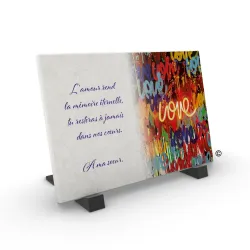 L'amour rend
la mémoire éternelle,
tu resteras à jamais
dans nos cœurs.
A ma sœur.
love
love
©